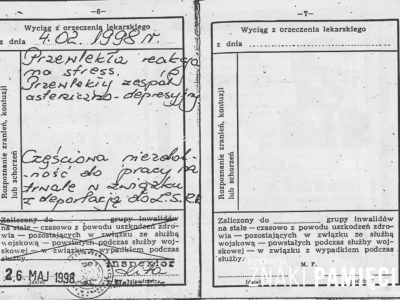 —6—
Wyciąg z orzeczenia lekarskiego
z dnia 4.02.1998 r.
Przewlekła reakcja
na stress.
Przewlekły zespół
asteniczno-depresyjny
Częściowa niezdol-
ność do pracy na
trwałe w związku
z deportacją do
Rozpoznanie zranień, kontuzji
lub schorzeń
Zaliczony do grupy inwalidów
na stałe — czasowo z powodu uszkodzeń zdro-
wia — pozostających w związku ze służbą
wojskową — powstałych podczas służby woj-
skowej — w związku z wypadkiem podczas
służby.
26 MAJ 1998
Inspektor
—7—
Wyciąg z orzeczenia lekarskiego
z dnia
Rozpoznanie zranień, kontuzji
lub schorzeń
Zaliczony do grupy inwalidów
na stałe — czasowo z powodu uszkodzeń zdro-
wia — pozostających w związku ze służbą
wojskową — powstałych podczas służby woj-
skowej — w związku z wypadkiem podczas
służby.
M. P.
ZNAKI PAMIĘCI